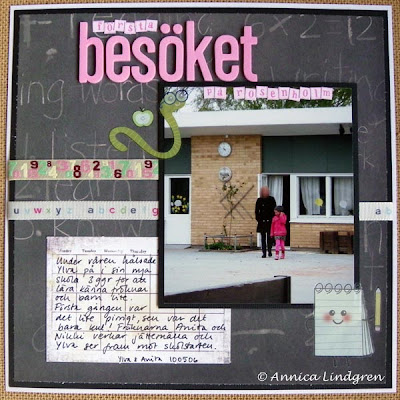 första
besöket
på rosenholm
ing words
1 9 8 2 6 9
u v w x y z a b c d e f g
a b
Under våren hälsade
Ylva på i sin nya
skola 3 ggr för att
lära känna fröknar
och barn lite.
Första gången var
det lite pirrigt, sen var det
bara kul! Fröknarna Anita och
Nikki verkar jättemälla och
Ylva ser fram mot skolstarten.
Ylva & Anita 100506
© Annica Lindgren